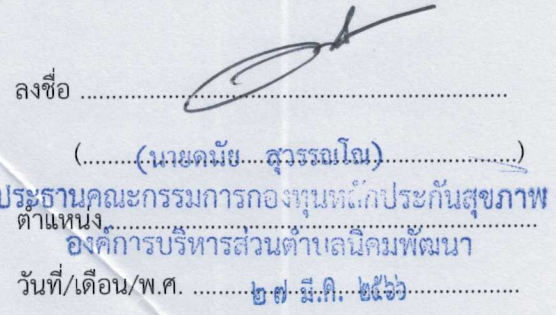 ลงชื่อ ..........................................................
(........(นายดนัย สุวรรณโณ)........................)
ประธานคณะกรรมการกองทุนหลักประกันสุขภาพ
ตำแหน่ง..........................................................
องค์การบริหารส่วนตำบลนิคมพัฒนา
วันที่/เดือน/พ.ศ. ........๒๗ มี.ค. ๒๕๖๖........................